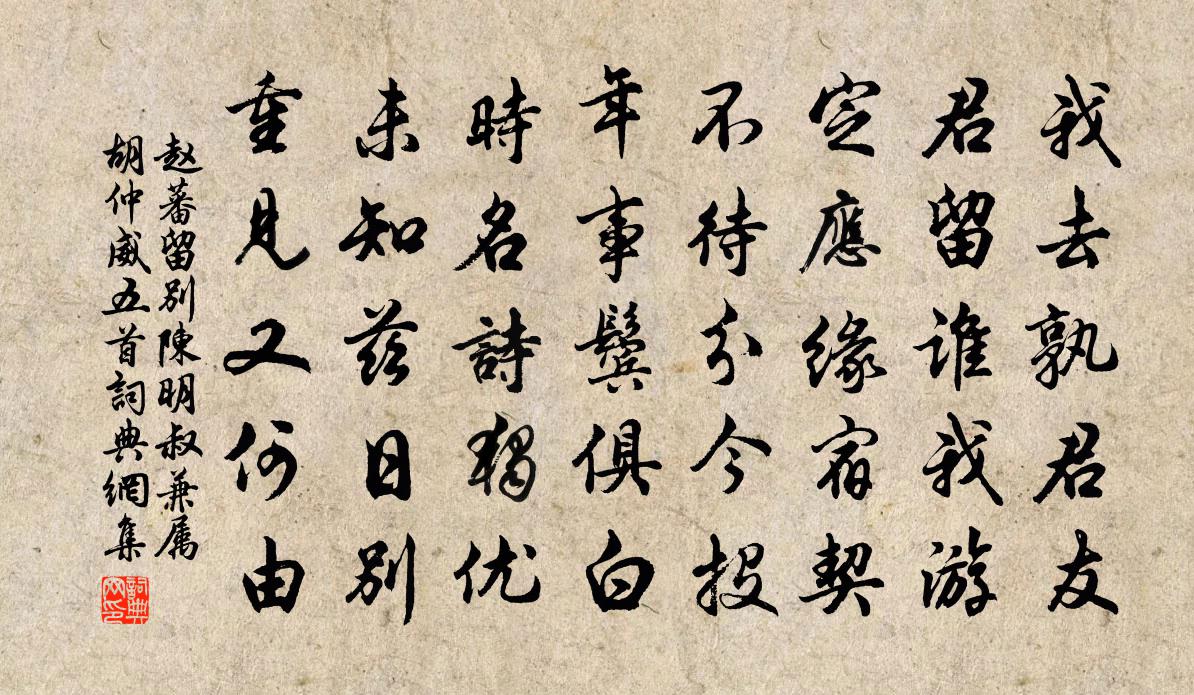 我去孰君友
君留谁我游
定應緣宿契
不待分今投
年事鬓俱白
時名詩獨优
未知茲日别
重見又何由
赵蕃留别陳明叔兼属
胡仲威五首詞典網集
詞典
网印